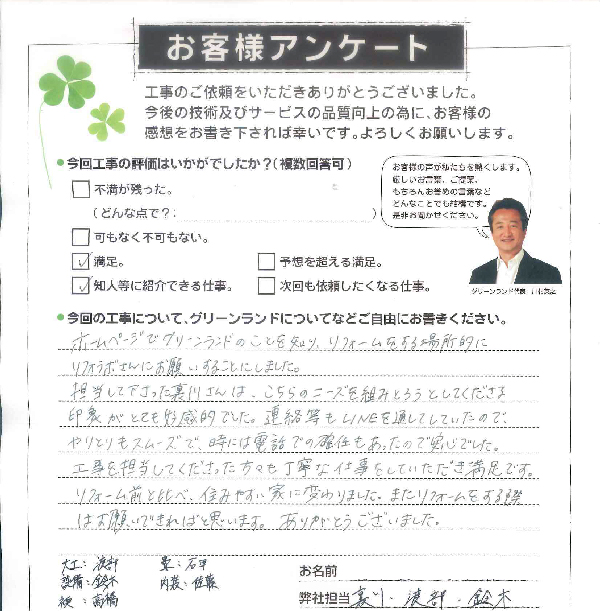 お客様アンケート
工事のご依頼をいただきありがとうございました。
今後の技術及びサービスの品質向上の為に、お客様の
感想をお書き下されば幸いです。よろしくお願いします。
●今回工事の評価はいかがでしたか?(複数回答可)
不満が残った。
(どんな点で?: )
可もなく不可もない。
✓満足。 予想を超える満足。
✓知人等に紹介できる仕事。 次回も依頼したくなる仕事。
お客様の声が私たちを熱くします。
厳しいお言葉、ご提案、
もちろんお誉めの言葉など
どんなことでも結構です。
是非お聞かせください。
グリーンランド代表
●今回の工事について、グリーンランドについてなどご自由にお書きください。
ホームページでグリーンランドのことを知り、リフォームをする場所的に
リフォラボさんにお願いすることにしました。
担当して下さった裏川さんは、こちらのニーズを組みとろうとしてくださる
印象がとても好感的でした。連絡等もLINEを通してしていたので、
やりとりもスムーズで、時には電話での確任もあったので安心でした。
工事を担当してくださった方々も丁寧な仕事をしていただき満足です。
リフォーム前と比べ、住みやすい家に変わりました。またリフォームをする際
はお願いできればと思います。ありがとうございました。
大工:渡部 畳:石甲
設備:鈴木 内装:佐藤
高橋
お名前
弊社担当 裏川・渡部・鈴木